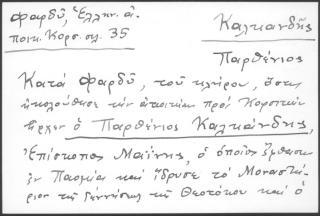 Φαρδῦ, Ἑλλην. ἀ-
ποικ. Κορσ. σλ. 35
Καλκανδῆς
Παρθένιος
Κατά Φαρδῦ, τοῦ κλήρου, ὅστις
ἠκολούθησε τήν ἀποικίαν πρός Κορσικήν
ἦρχεν ὁ Παρθένιος Καλκάνδης,
Ἐπίσκοπος Μαΐνης, ὁ ὁποῖος ἔφθασεν
ἐν Παομίᾳ καί ἵδρυσε τό Μοναστή-
ριον τῆς Γεννήσεως τῆς Θεοτόκου καί ὁ